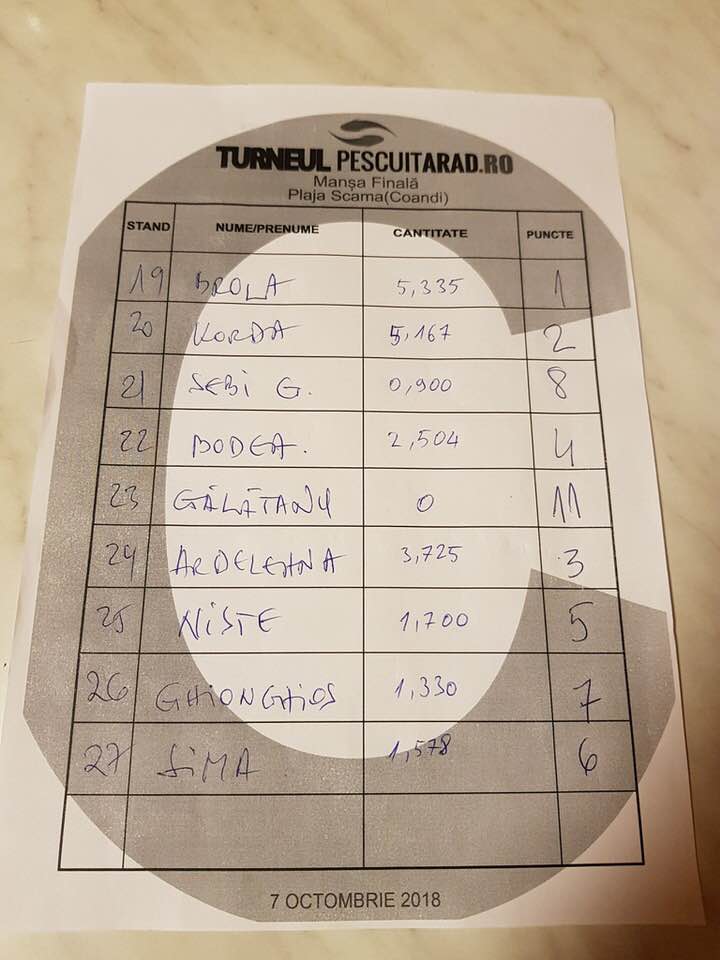 TURNEUL PESCUITARAD.RO
Manșa Finală
Plaja Scama(Coandi)
STAND NUME/PRENUME CANTITATE PUNCTE
19 BROLA 5,335 1
20 KORDA 5,167 2
21 SEBI G. 0,900 8
22 BODEA. 2,504 4
23 GĂLĂTANU 0 11
24 ARDELEANA 3,725 3
25 NISTE 1,700 5
26 GHIONGHIOS 1,330 7
27 SIMA 1,578 6
7 OCTOMBRIE 2018